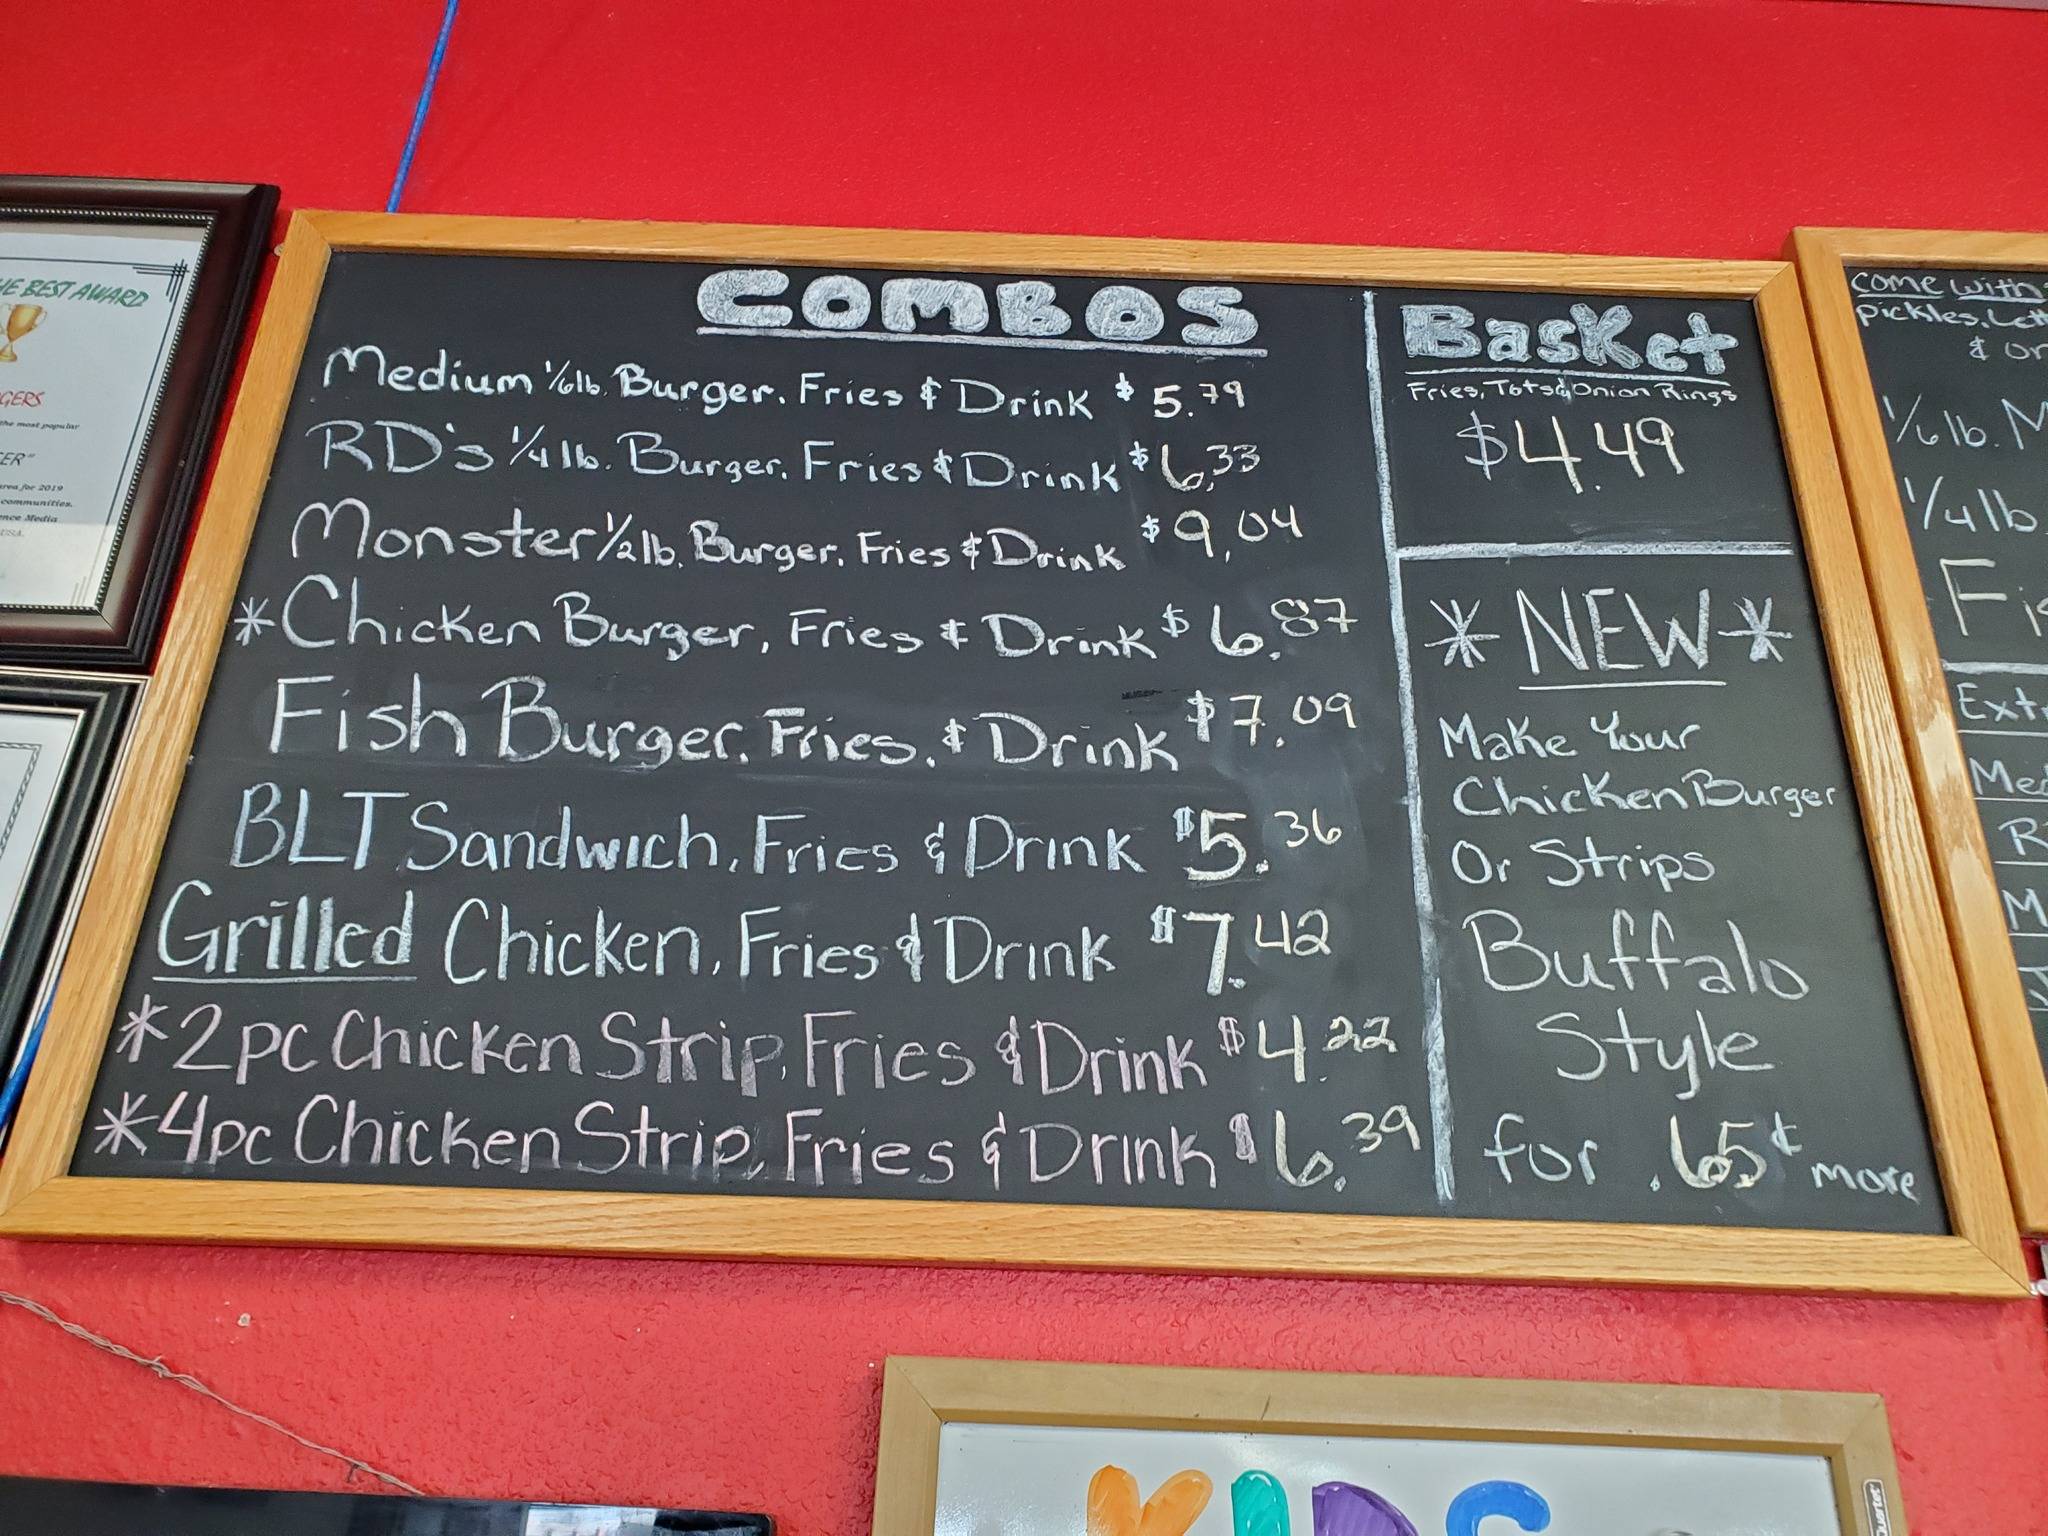 COMBOS
Medium 1/6 lb. Burger, Fries & Drink $5.79
RD's 1/4 lb. Burger, Fries & Drink $6.33
Monster 1/2 lb. Burger, Fries & Drink $9.04
*Chicken Burger, Fries & Drink $6.87
Fish Burger, Fries, & Drink $7.09
BLT Sandwich, Fries & Drink $5.36
Grilled Chicken, Fries & Drink $7.42
*2pc Chicken Strip, Fries & Drink $4.22
*4pc Chicken Strip, Fries & Drink $6.39
Basket
Fries, Tots & Onion Rings
$4.49
*NEW*
Make Your
Chicken Burger
Or Strips
Buffalo
Style
for .65¢ more
come with
pickles,
&
1/6 lb.
1/4 lb
BEST AWARD
the most popular
area for 2019
communities.
Media
USA.
KIDS
Quartet